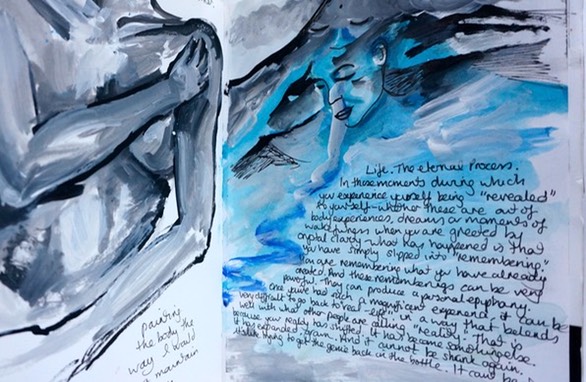 painting
the body the
way I would
a mountain
Life. The eternal Process.
In those moments during which
you experience yourself being "revealed"
to yourself - whether these are out of
body experiences, dreams or moments of
wakefulness when you are greeted by
crystal clarity - what has happened is that
you have simply slipped into "remembering."
You are remembering what you have already
created. And these rememberings can be very
powerful. They can produce a personal epiphany.
Once you've had such a magnificent experience, it can be
very difficult to go back to "real - life" in a way that blends
well with what other people are calling "reality". That is
because your reality has shifted. It has become something else.
It has expanded, grown. And it cannot be shrunk again.
It's like trying to get the genie back in the bottle. It can't be